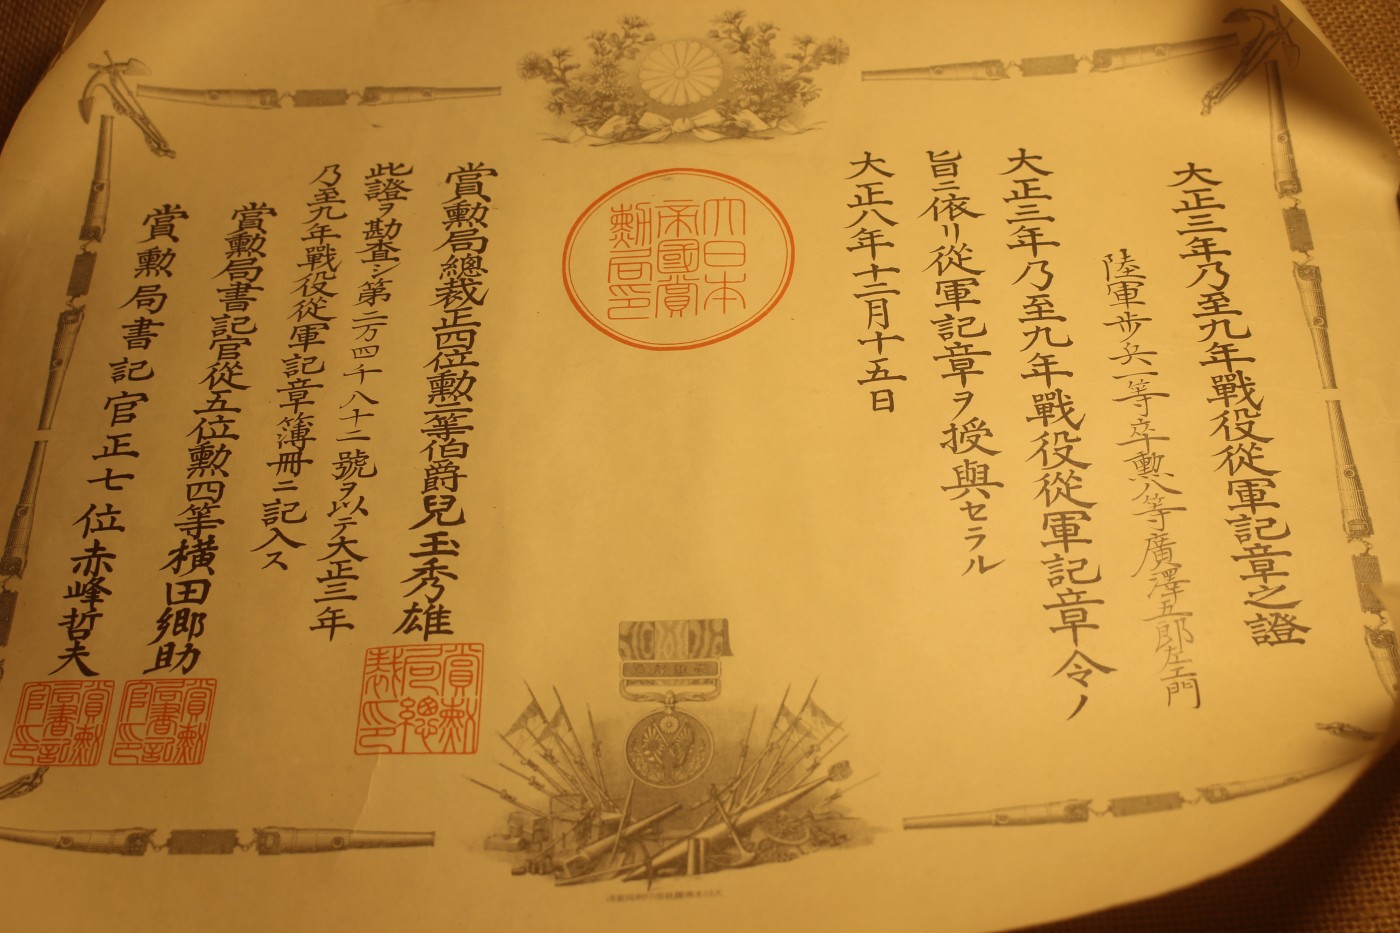 大正三年乃至九年戰役從軍記章之證
陸軍歩兵一等卒勲八等廣澤五郎左エ門
大正三年乃至九年戰役從軍記章令ノ
旨ニ依リ從軍記章ヲ授與セラル
大正八年十二月十五日
大日本
帝國賞
勲局印
賞勲局總裁正四位勲一等伯爵兒玉秀雄
賞勲
局總
裁印
此證ヲ勘査シ第二万四千八十二號ヲ以テ大正三年
乃至九年戰役從軍記章簿冊ニ記入ス
賞勲局書記官從五位勲四等横田郷助
賞勲
局書記
官印
賞勲局書記官正七位赤峰哲夫
賞勲
局書記
官印